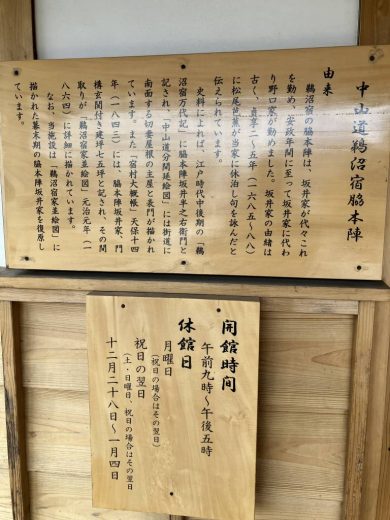 中山道鵜沼宿脇本陣
由来
鵜沼宿の脇本陣は、坂井家が代々これ
を勤め、安政年間に至って坂井家に代わ
り野口家が勤めました。坂井家の由緒は
古く、貞享二～五年(一六八五～八八)
に松尾芭蕉が当家に休泊し句を詠んだと
伝えられています。
史料によれば、江戸時代中後期の「鵜
沼宿万代記」に脇本陣坂井半之右衛門と
記され、「中山道分間延絵図」には街道に
南面する切妻屋根の主屋と表門が描かれ
ています。また「宿村大概帳」天保十四
年(一八四三)には、脇本陣坂井家、門
構玄関付き建坪七五坪と記され、その間
取りが「鵜沼宿家並絵図」元治元年(一
八六四)に詳細に描かれています。
なお、当施設は「鵜沼宿家並絵図」に
描かれた幕末期の脇本陣坂井家を復原し
ています。
開館時間
午前九時～午後五時
休館日
月曜日
(祝日の場合はその翌日)
祝日の翌日
(土・日曜日、祝日の場合はその翌日
十二月二十八日～一月四日